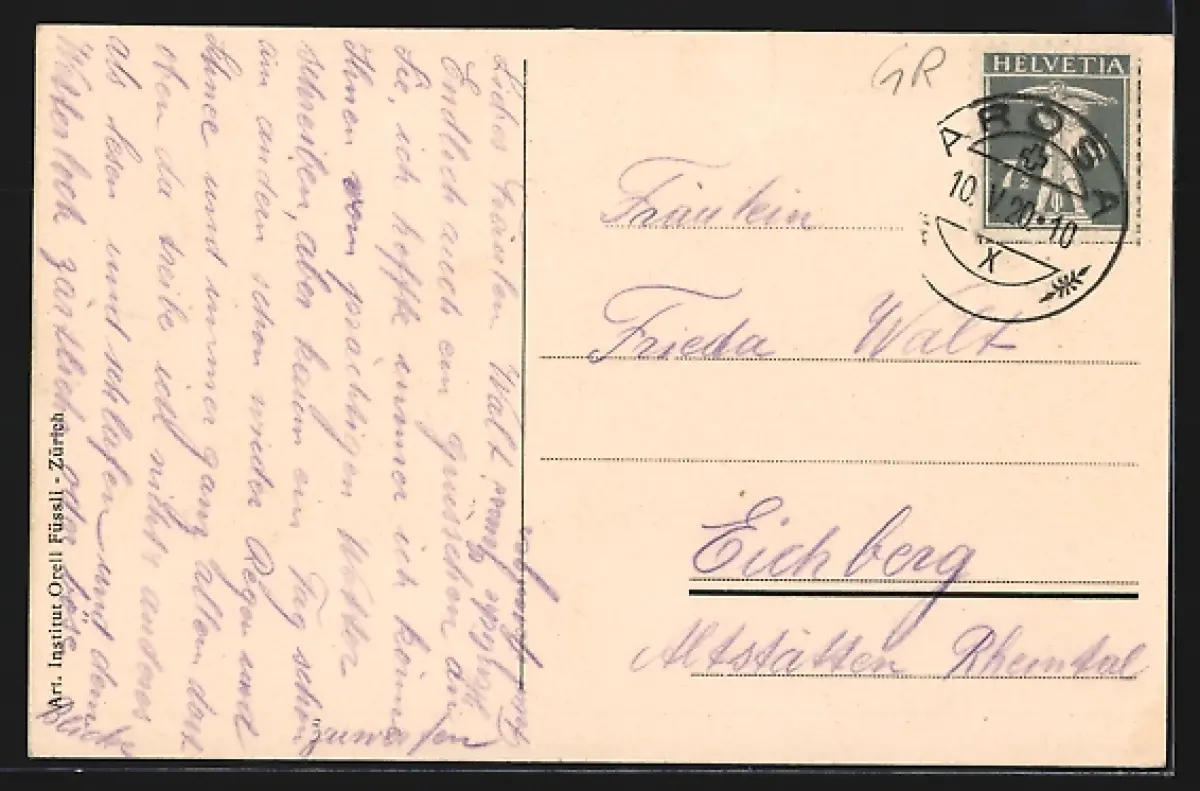 Liebes Fräulein Walt
Endlich auch ein Grüsschen an
Sie, ich hoffte immer ich könne
Ihnen vom prächtigen Wetter
schreiben, aber kaum ein Tag schön
am andern schon wieder Regen und
Schnee und immer ganz allein dort
oben da treibe ich nichts anderes
als lesen und schlafen und dem
zärtliche oder böse
Blicke
zuwerfen
Art. Institut Orell Füssli - Zürich
GR
HELVETIA
7½
AROSA
10. V. 20 • 10
X
Fräulein
Frieda Walt
Eichberg
Altstätten Rheintal